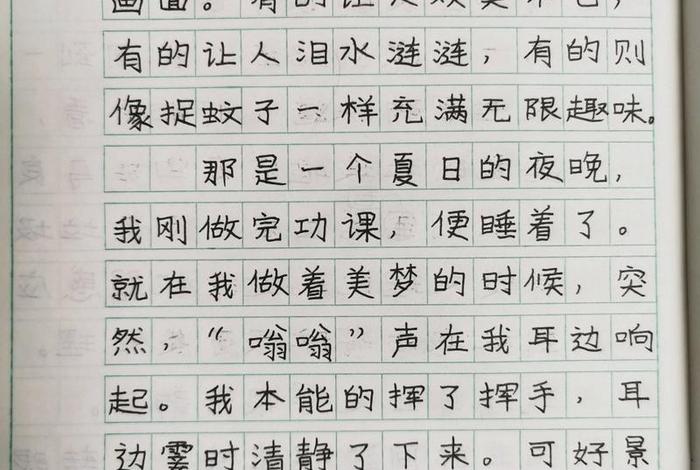 画面。有的让人欢笑不已，
有的让人泪水涟涟，有的则
像捉蚊子一样充满无限趣味。
那是一个夏日的夜晚，
我刚做完功课，便睡着了。
就在我做着美梦的时候，突
然，“嗡嗡”声在我耳边响
起。我本能的挥了挥手，耳
边霎时清静了下来。可好景